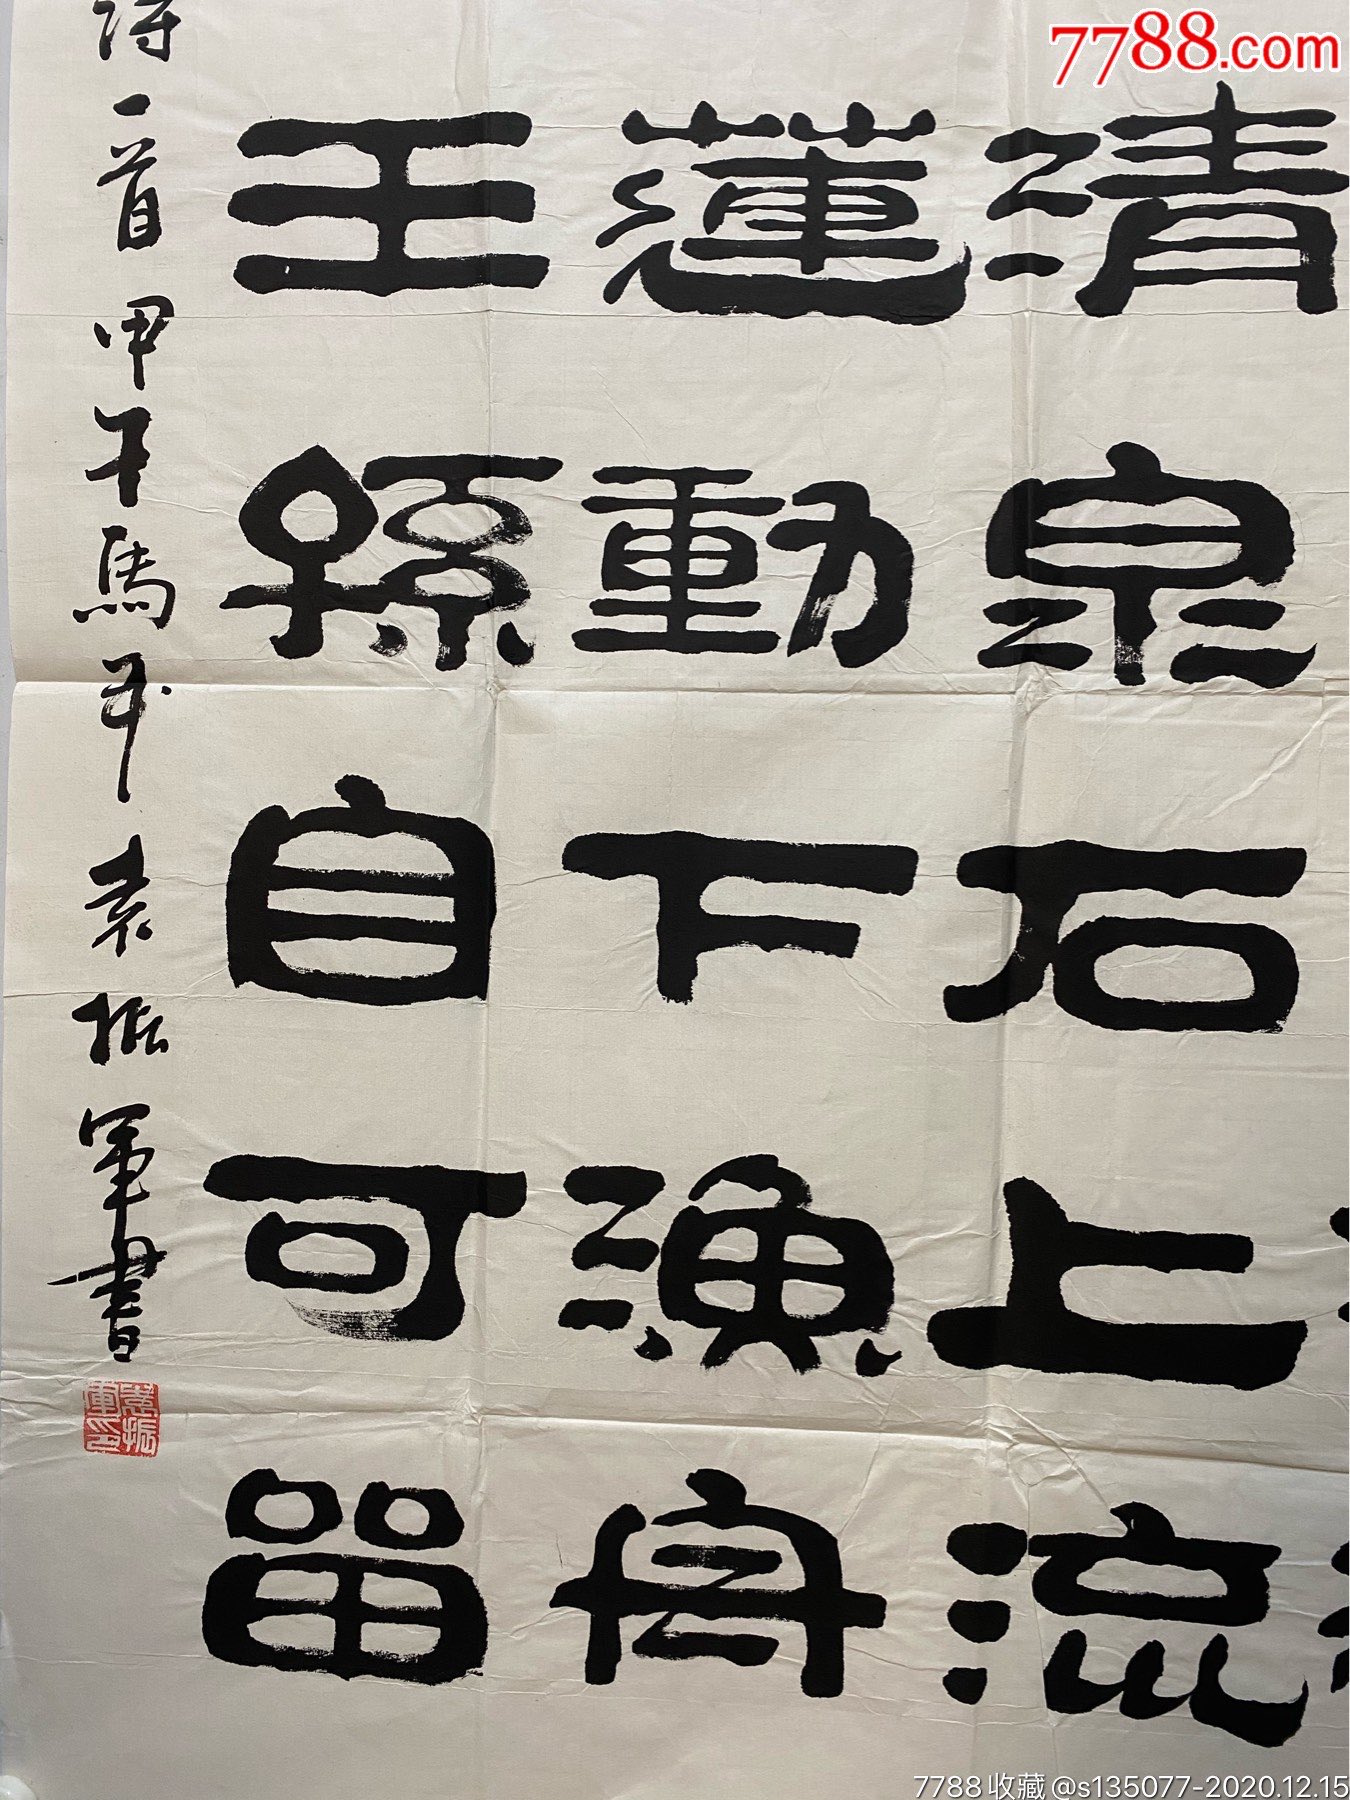 7788.com
清泉石上流
蓮動下漁舟
王孫自可留
诗一首甲午馬年袁振軍書
袁振軍印
7788收藏@s135077-2020.12.15